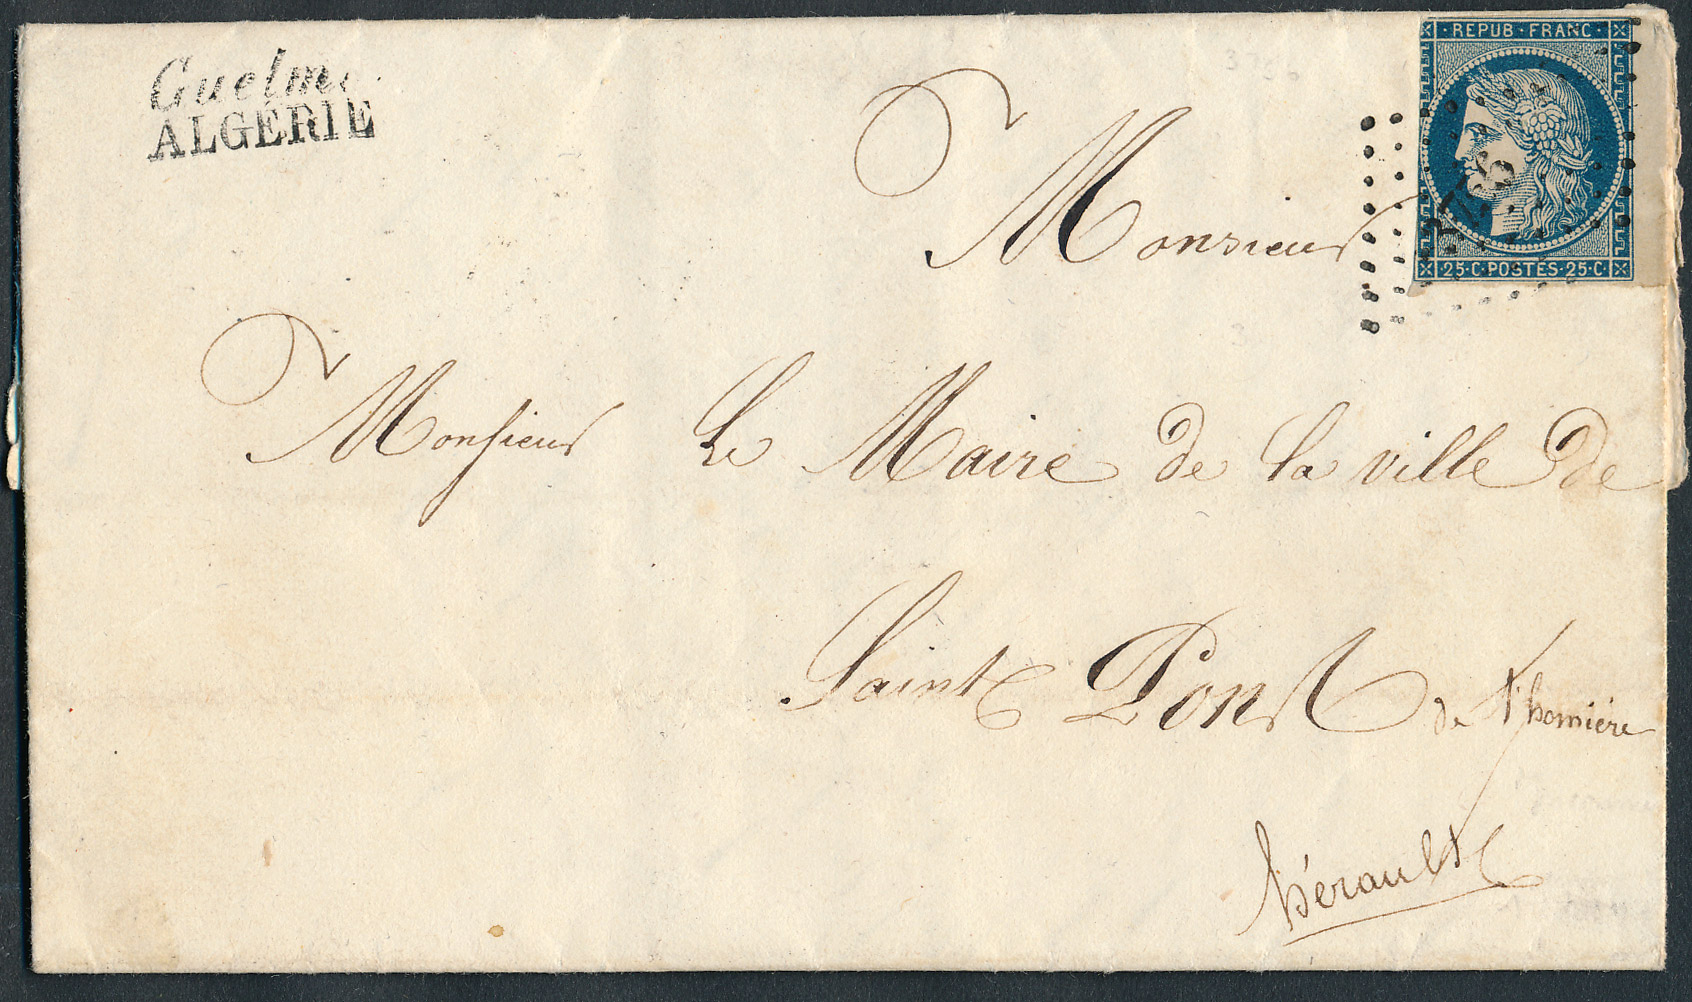 Guelma
ALGÉRIE
REPUB·FRANC·
25·C·POSTES·25·C
Monsieur
Monsieur Le Maire de la ville de
Saint Pons de Thomière
hérault